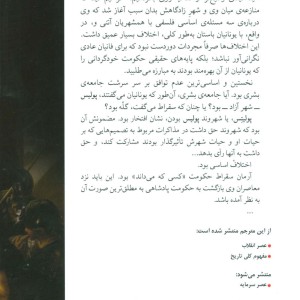 منازعه‌ی میان وی و شهر زادگاهش بدان سبب آغاز شد که وی
درباره‌ی سه مسئله‌ی اساسی فلسفی با همشهریان آتنی و، در
واقع، با یونانیان باستان به‌طور کلی، اختلاف بسیار عمیق داشت.
این اختلاف‌ها صرفاً مجردات دوردست نبود که برای فانیان عادی
نگرانی‌آور نباشد؛ بلکه پایه‌های حقیقی حکومت خودگردانی را
که یونانیان از آن بهره‌مند بودند به مبارزه می‌طلبید.
نخستین و اساسی‌ترین عدم توافق بر سر سرشت جامعه‌ی
بشری بود. آیا جامعه‌ی بشری، آن‌طور که یونانیان می‌گفتند، پولیس
ــ شهر آزاد ــ بود؟ یا چنان که سقراط می‌گفت، گله بود؟
پولیس، یا شهروند پولیس بودن، نشان افتخار بود. مضمونش آن
بود که شهروند حق داشت در مذاکرات مربوط به تصمیم‌هایی که بر
حیات او و حیات شهرش تأثیرگذار بودند مشارکت کند، و حق
داشت به آنها رأی بدهد...
اختلاف اساسی بود.
آرمان سقراط حکومت «کسی که می‌داند» بود. این باید نزد
معاصران وی بازگشت به حکومت پادشاهی به مطلق‌ترین صورت آن
به نظر آمده باشد.
از این مترجم منتشر شده است:
عصر انقلاب
مفهوم کلی تاریخ
منتشر می‌شود:
عصر سرمایه